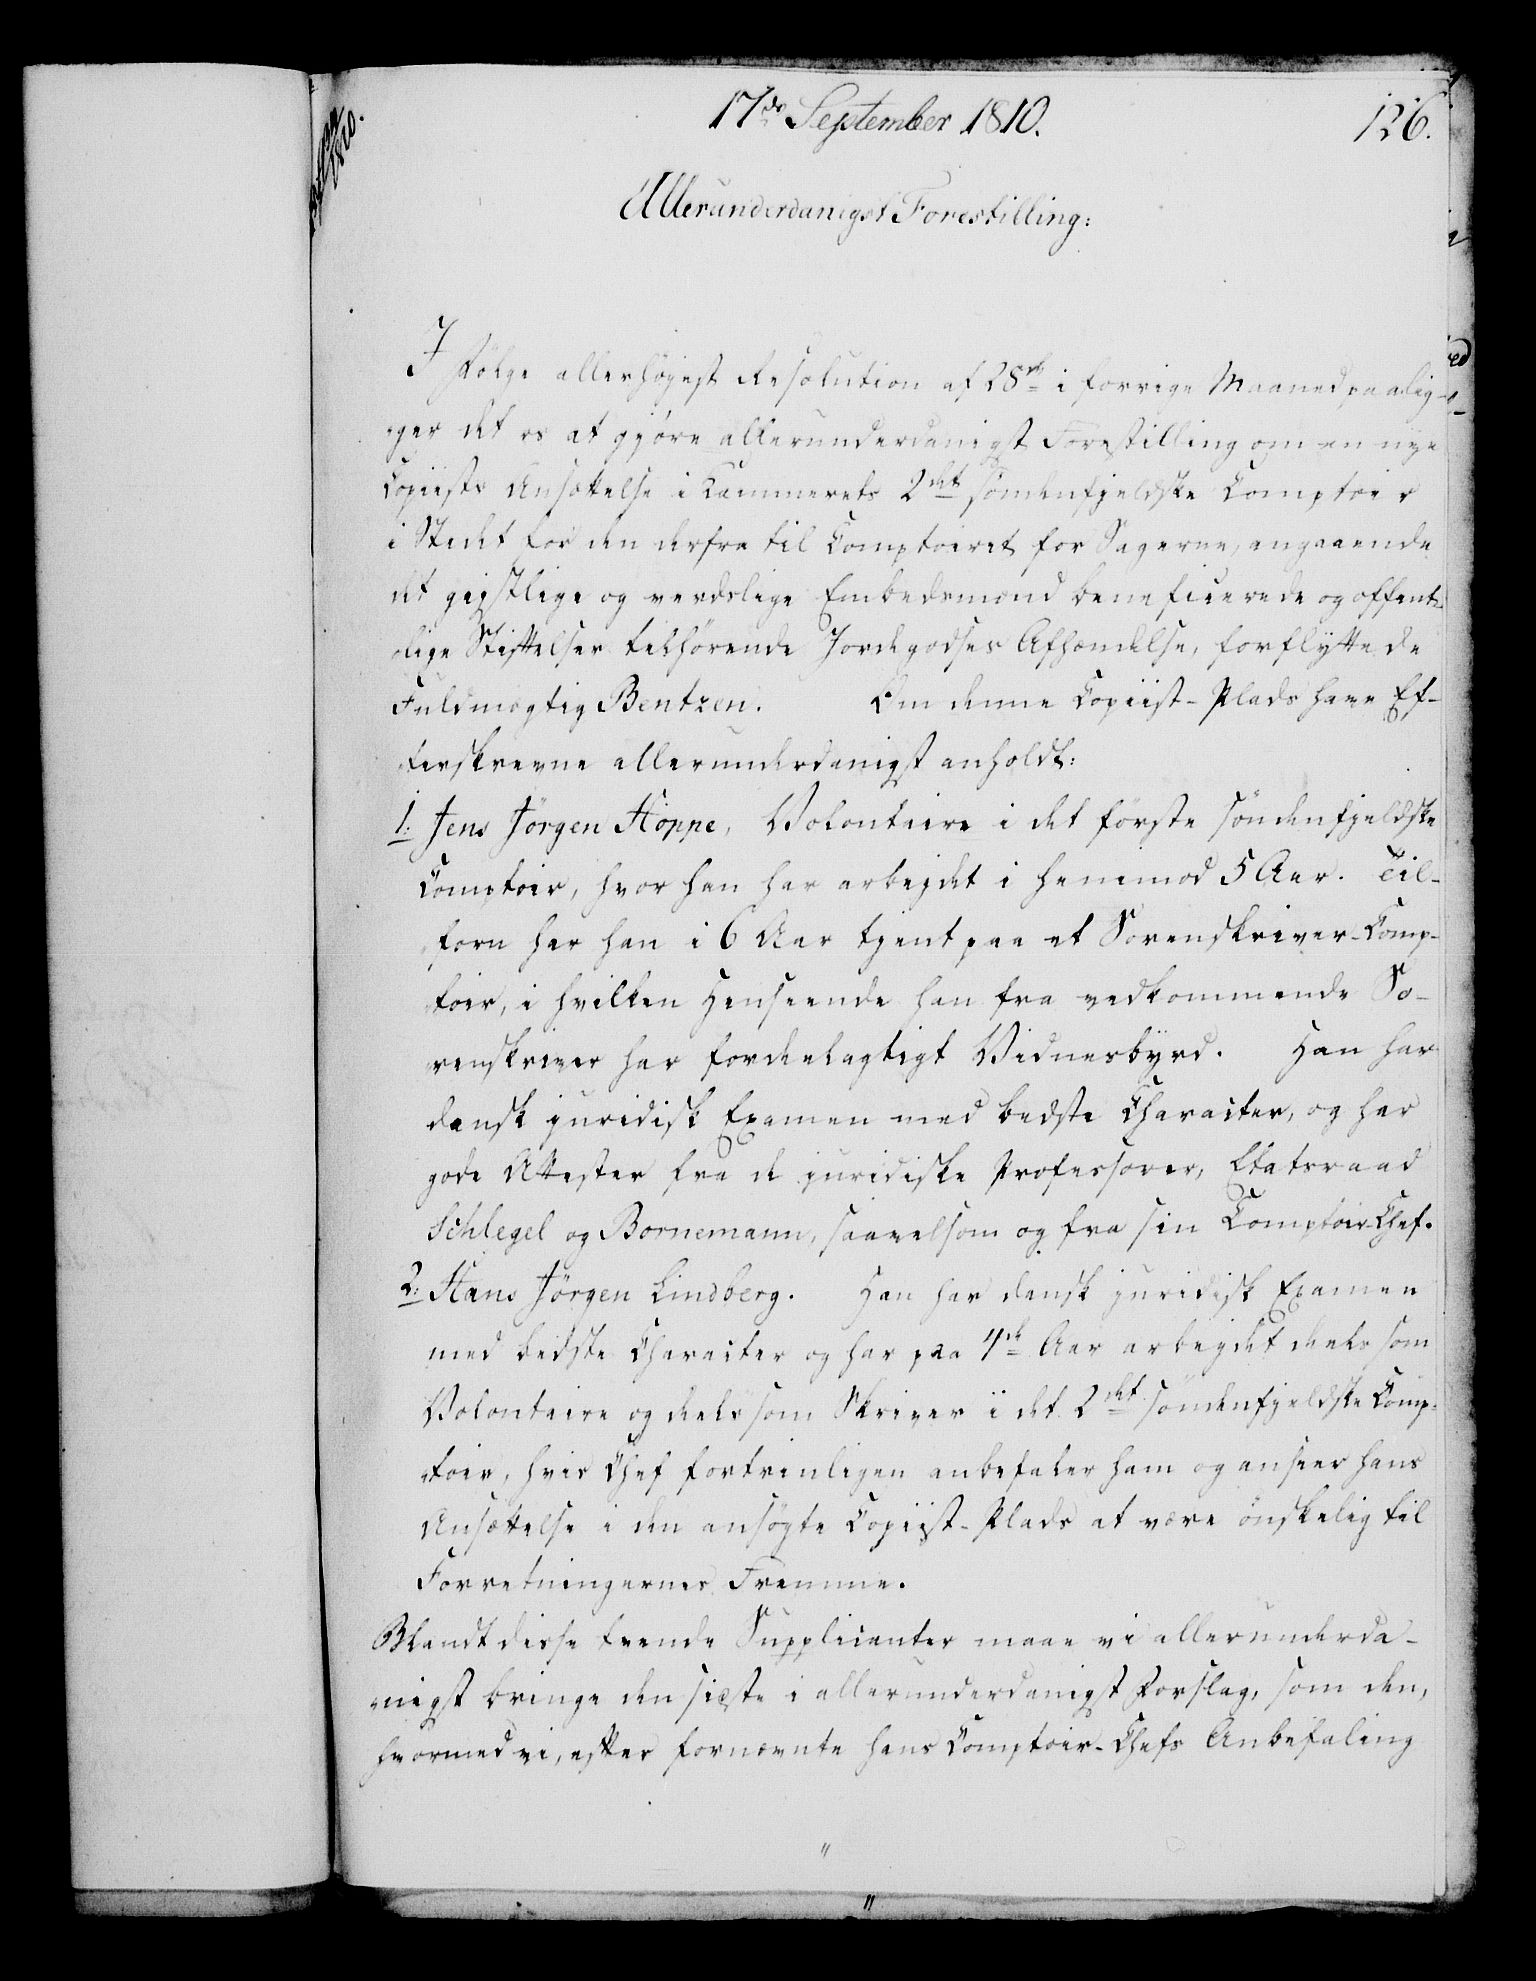 17de September 1810.
126.
Allerunderdanigst Forestilling:
I Fölge allerhöjest Resolution af 28de i forrige Maaned paalig-
ger det os at gjöre allerunderdanigst Forestilling om en nye
Copiists Ansættelse i Kammerets 2det söndenfjeldske Comptoir
i Stedet for den derfra til Comptoiret for Sagerne, angaaende
det gejstlige og verdslige Embedsmænd beneficerede og offent-
lige Stiftelser tilhörende Jordegodses Afhændelse, forflyttede
Fuldmægtig Bentzen. Om denne Copiist-Plads have Ef-
terskrevne allerunderdanigst anholdt:
1: Jens Jörgen Höppe, Volontaire i det förste söndenfjeldske
Comptoir, hvor han har arbejdet i henimod 5 Aar. Til-
forn har han i 6 Aar tjent paa et Sorenskriver-Comp-
toir, i hvilken Henseende han fra vedkommende So-
renskriver har fordeelagtigt Vidnesbyrd. Han har
dansk juridisk Examen med bedste Character, og har
gode Attester fra de juridiske Professorer, Etatsraad
Schlegel og Bornemann, saavelsom og fra sin Comptoir Chef.
2: Hans Jörgen Lindberg. Han har dansk juridisk Examen
med bedste Character og har paa 4de Aar arbejdet deels som
Volontaire og deels som Skriver i det 2det söndenfjeldske Comp-
toir, hvis Chef fortrinligen anbefaler ham og anseer hans
Ansættelse i den ansögte Copiist-Plads at være önskelig til
Forretningernes Fremme.
Blandt disse tvende Supplicanter maae vi allerunderda-
nigst bringe den sidste i allerunderdanigst Forslag, som den,
hvormed vi, efter fornævnte hans Comptoir-Chefs Anbefaling